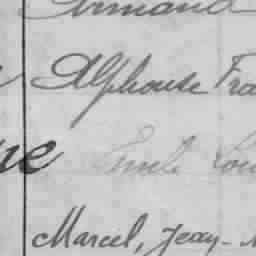 Armand
Alphonse Fra
ne Emile Lou
Marcel, Jean-